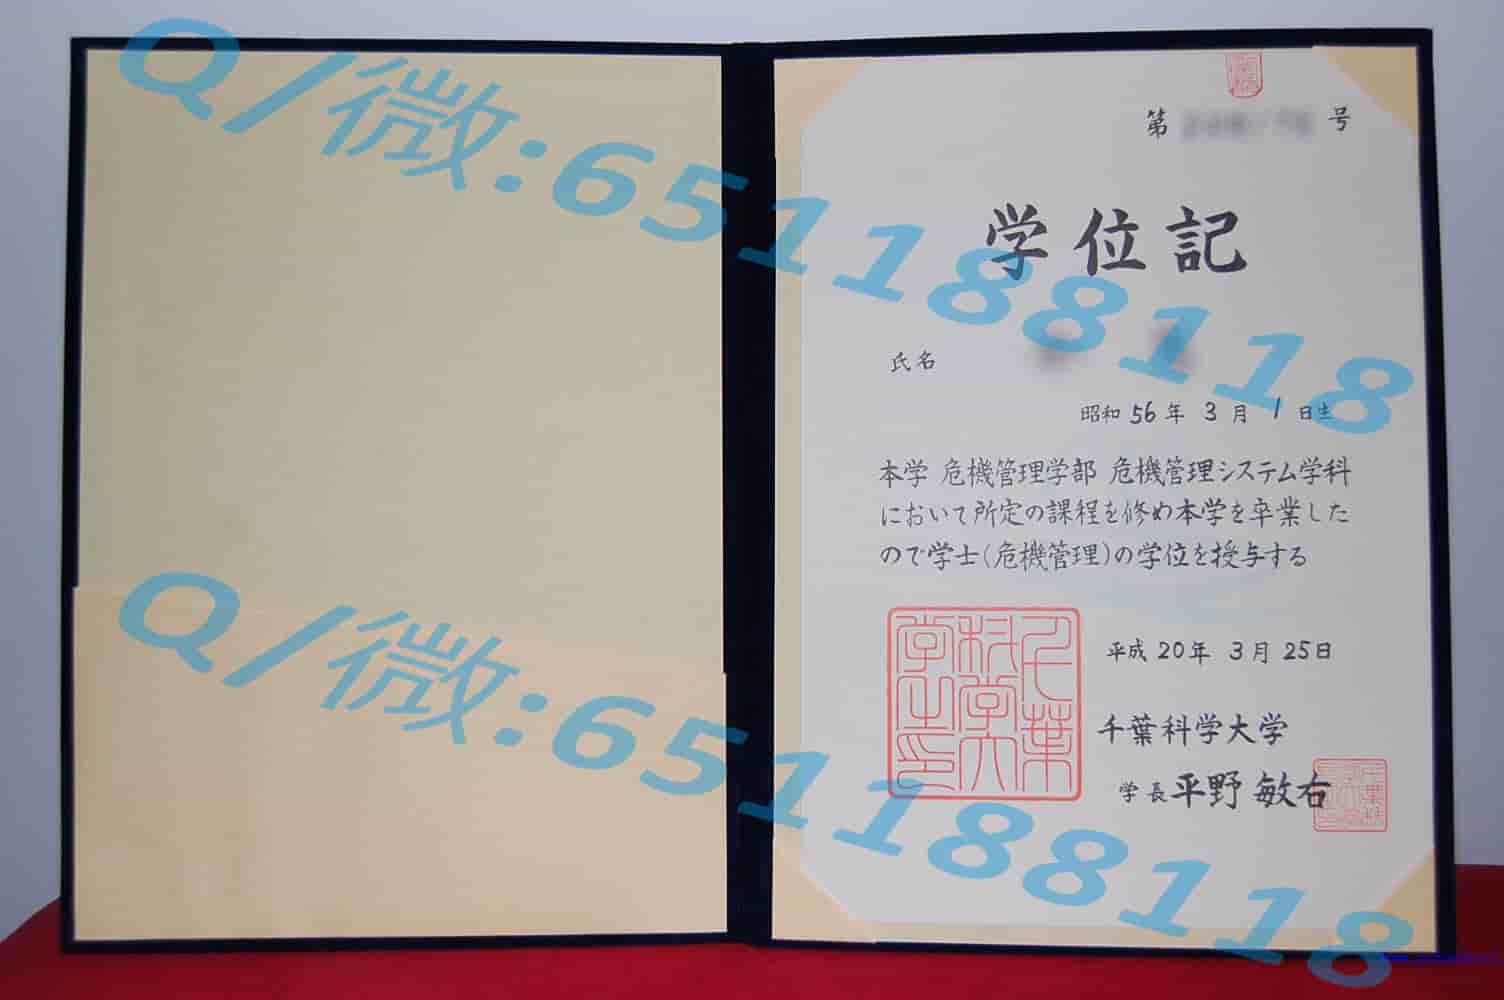 Q/微:651188118
第 号
学位記
氏名
昭和 56 年 3 月 1 日生
本学 危機管理学部 危機管理システム学科
において所定の課程を修め本学を卒業した
ので学士(危機管理)の学位を授与する
平成 20 年 3 月 25 日
千葉科学大学
学長 平野 敏右
千葉
科学大
学之印
Q/微:651188118